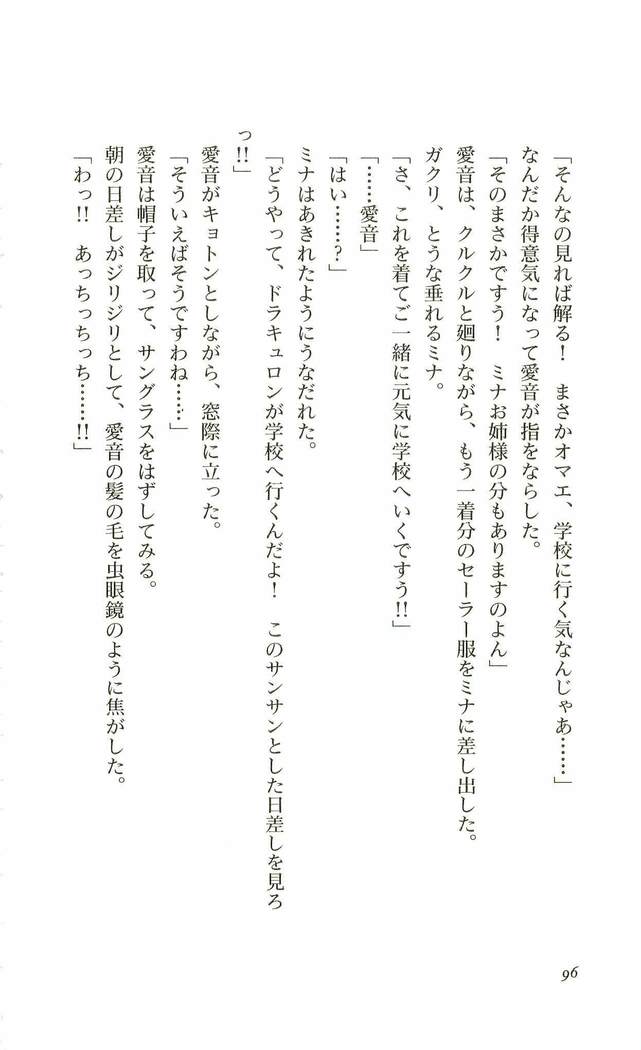 「そんなの見れば解る！　まさかオマエ、学校に行く気なんじゃあ……」
なんだか得意気になって愛音が指をならした。
「そのまさかですう！　ミナお姉様の分もありますのよん」
愛音は、クルクルと廻りながら、もう一着分のセーラー服をミナに差し出した。
ガクリ、とうな垂れるミナ。
「さ、これを着てご一緒に元気に学校へいくですう!!」
「……愛音」
「はい……？」
ミナはあきれたようにうなだれた。
「どうやって、ドラキュロンが学校へ行くんだよ！　このサンサンとした日差しを見ろ
っ!!」
愛音がキョトンとしながら、窓際に立った。
「そういえばそうですわね……」
愛音は帽子を取って、サングラスをはずしてみる。
朝の日差しがジリジリとして、愛音の髪の毛を虫眼鏡のように焦がした。
「わっ!!　あっちっちっち……!!」
96